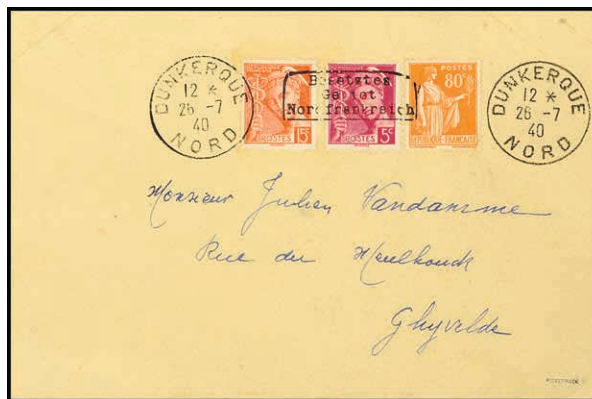 DUNKERQUE
12 *
26 -7
40
NORD
POSTES
15c
Besetztes
Gebiet
Nordfrankreich
POSTES
5c
POSTES
80c
REPUBLIQUE FRANCAISE
DUNKERQUE
12 *
26 -7
40
NORD
Monsieur Julien Vandamme
Rue du Meulhouck
Ghyvelde